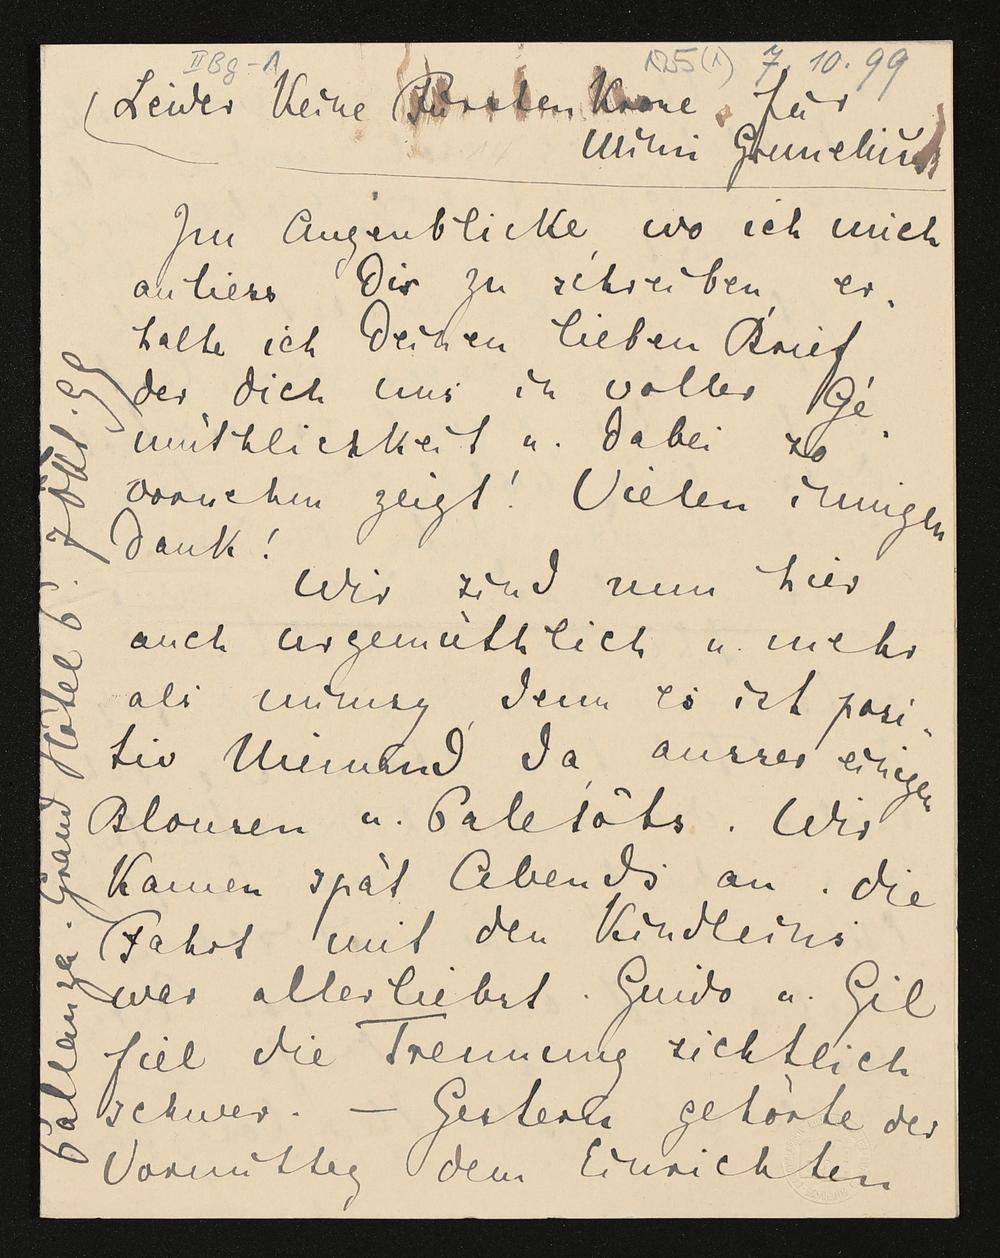 II Bg-A
125(1) 7. 10. 99
Leider Keine Fürsten Krone für
Mimi Grunelius
Im Augenblicke, wo ich mich
anliess Dir zu schreiben, er-
halte ich Deinen lieben Brief
der Dich uns in voller Ge-
müthlichkeit u. dabei so
vornehm zeigt! Vielen innigen
Dank!
Wir sind nun hier
auch urgemüthlich u. mehr
als mimsy, denn es ist posi-
tiv Niemand da, ausser einigen
Blousen u. Paletôts. Wir
Kamen spät Abends an. die
Fahrt mit den Kindleins
war allerliebst. Guido u. Gil
fiel die Trennung sichtlich
schwer. — Gestern gehörte der
Vormittag dem Einrichten
Pallanza. Grand Hôtel P. 7 Okt. 99